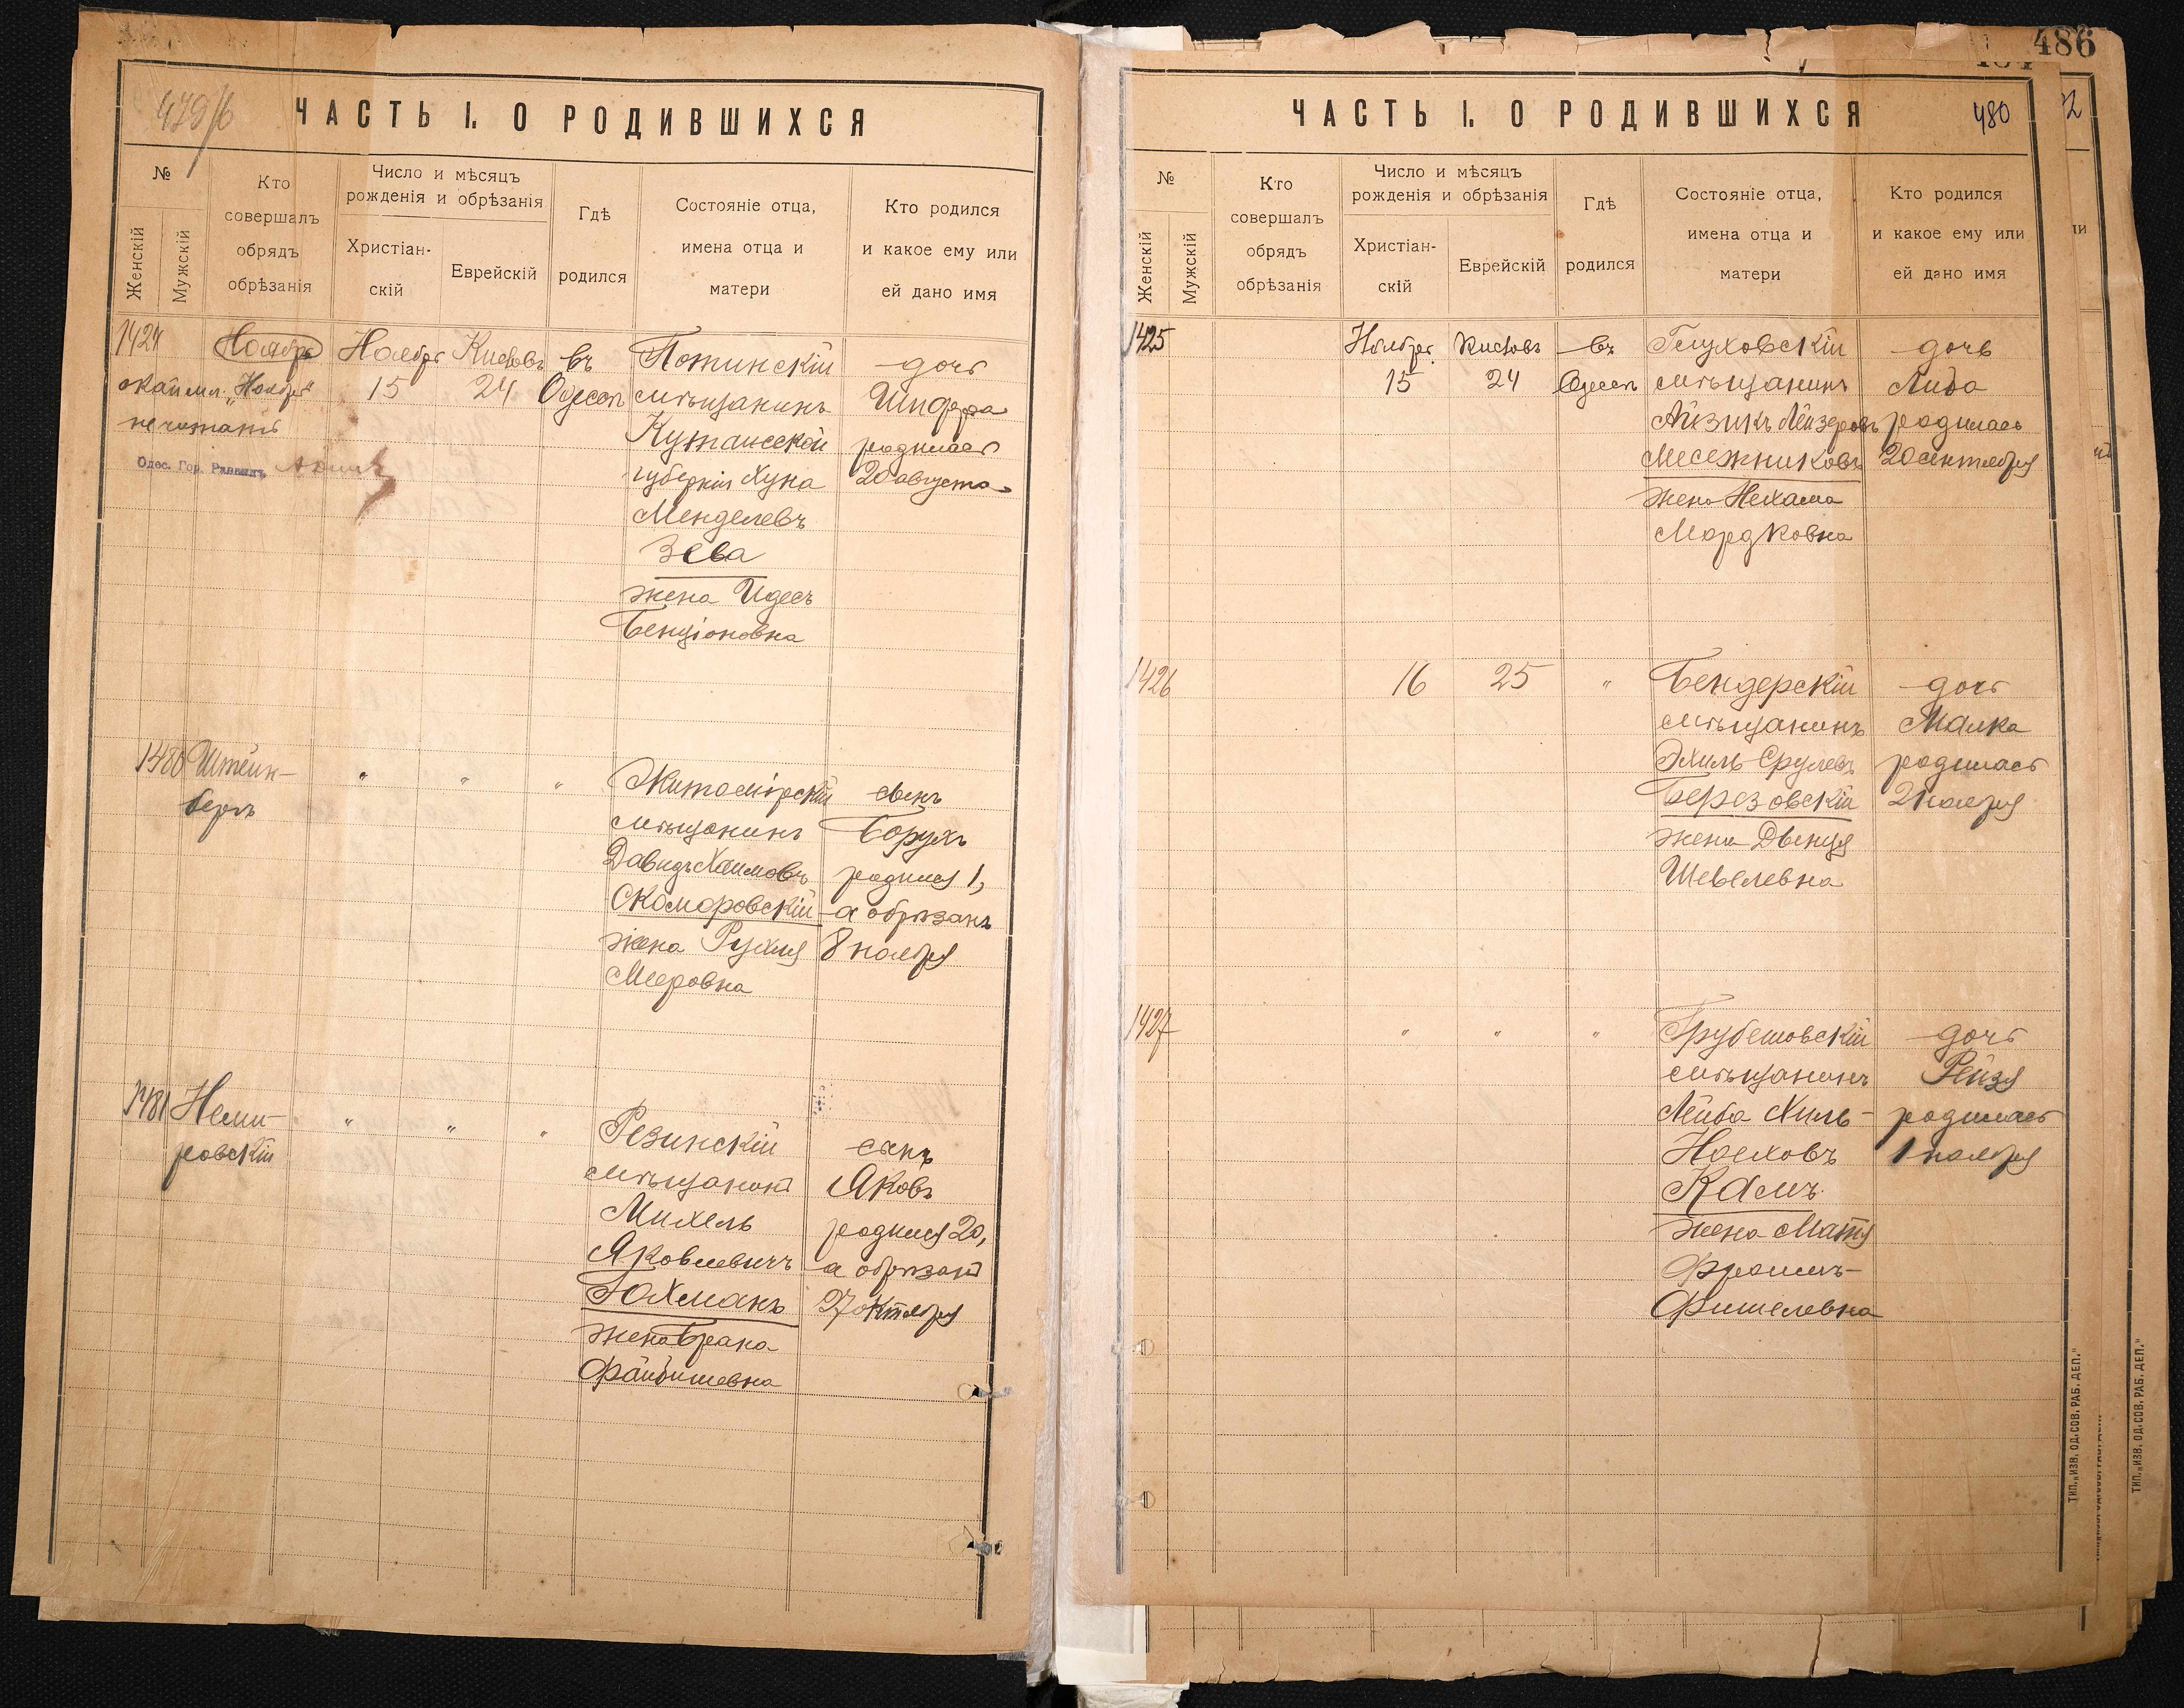 479/б
ЧАСТЬ I. О РОДИВШИХСЯ
№
Женскій
Мужскій
Кто
совершалъ
обрядъ
обрѣзанія
Число и мѣсяцъ
рожденія и обрѣзанія
Христіан-
скій
Еврейскій
Гдѣ
родился
Состояніе отца,
имена отца и
матери
Кто родился
и какое ему или
ей дано имя
1424
Ноябрь
Ноябрь
15
Кислевъ
24
въ
Одессѣ
Потинскій
мѣщанинъ
Кутаисской
губерніи Хуна
Менделевъ
Зева
жена Идесъ
Бенціоновна
дочь
Шифра
родилась
20 августа
"Ноябрь"
не читать
Одес. Гор. Раввинъ
1480
Штейн-
бергъ
" " "
Житомірскій
мѣщанинъ
Давидъ Хаимовъ
Скоморовскій
жена Рухля
Мееровна
сынъ
Борухъ
родился 1,
а обрѣзанъ
8 ноября
1481
Неми-
ровскій
" " "
Резинскій
мѣщанинъ
Михель
Яковлевичъ
Юхманъ
жена Брана
Файвишевна
сынъ
Яковъ
родился 20,
а обрѣзанъ
27 октября
486
480
ЧАСТЬ I. О РОДИВШИХСЯ
№
Женскій
Мужскій
Кто
совершалъ
обрядъ
обрѣзанія
Число и мѣсяцъ
рожденія и обрѣзанія
Христіан-
скій
Еврейскій
Гдѣ
родился
Состояніе отца,
имена отца и
матери
Кто родился
и какое ему или
ей дано имя
1425
Ноябрь
15
Кислевъ
24
въ
Одессѣ
Глуховскій
мѣщанинъ
Айзикъ Лейзеровъ
Месежниковъ
жена Нехама
Мордковна
дочь
Либа
родилась
20 сентября
1426
16
25
"
Бендерскій
мѣщанинъ
Эхиль Срулевъ
Березовскій
жена Двенця
Шевелевна
дочь
Малка
родилась
2 ноября
1427
" " "
Грубешовскій
мѣщанинъ
Лейба Хиль-
Ноеховъ
Камъ
жена Матя
Фроимъ-
Фишелевна
дочь
Рейзя
родилась
1 ноября
ТИП. „ИЗВ. ОД. СОВ. РАБ. ДЕП."
ТИП. „ИЗВ. ОД. СОВ. РАБ. ДЕП."